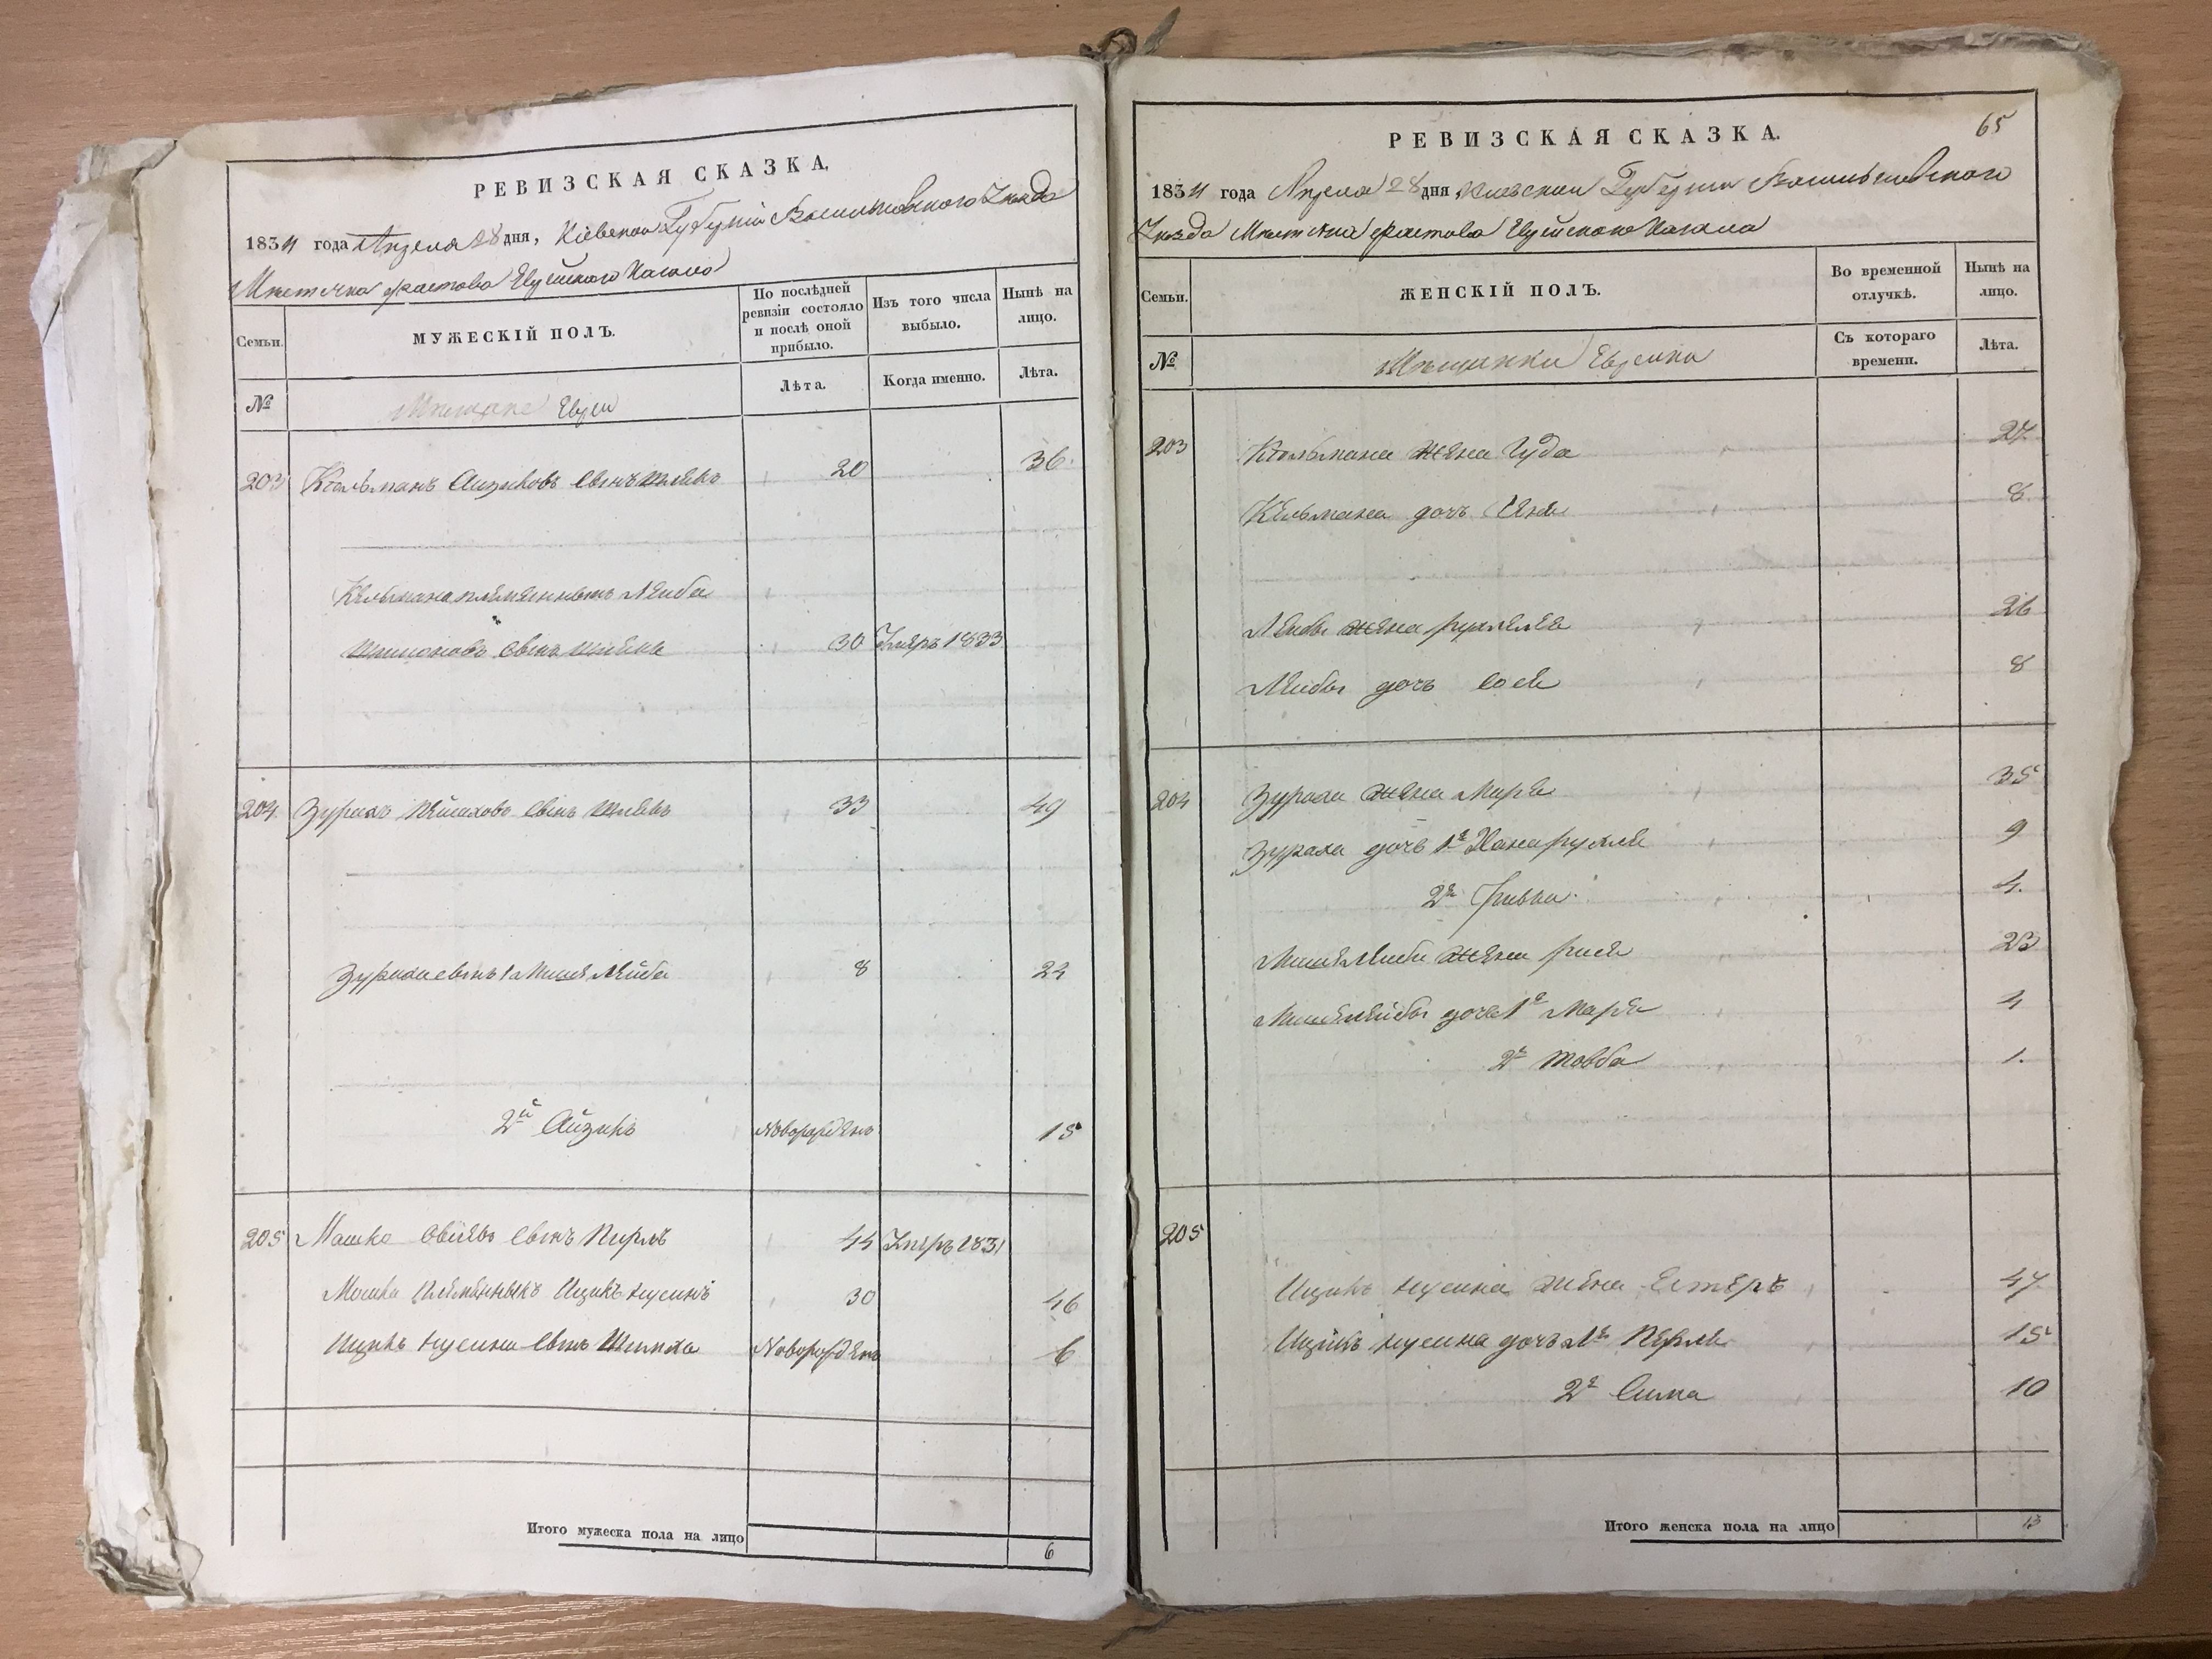 РЕВИЗСКАЯ СКАЗКА.
1834 года Апреля 28 дня, Кіевской Губерніи Васильковскаго Уезда
Местечка Фастова Еврейскаго Кагала
Семьи.
МУЖЕСКІЙ ПОЛЪ.
По послѣдней ревизіи состояло и послѣ оной прибыло.
Изъ того числа выбыло.
Нынѣ на лицо.
№
Мещане Евреи
Лѣта.
Когда именно.
Лѣта.
203 Кельманъ Айзиковъ сынъ 20 36
Кельмана племенныкъ Лейба
сынъ 30 Умеръ 1833
204. Зурахъ сынъ 33 49
Зураха сынъ 1 Лейба 8 24
2й Айзикъ Новорожденъ 15
205 Мошко сынъ 44 Умеръ 1831
Мошка племенныкъ Ицикъ Нусинъ 30 46
Ицикъ Нусина сынъ Шимха Новорожденъ 6
Итого мужеска пола на лицо 6
65
РЕВИЗСКАЯ СКАЗКА.
1834 года Апреля 28 дня Киевской Губернии Васильковскаго
Уезда Местечка Фастова Еврейскаго Кагала
Семьи.
ЖЕНСКІЙ ПОЛЪ.
Во временной отлучкѣ.
Нынѣ на лицо.
№
Мещанки Еврейки
Съ котораго времени.
Лѣта.
203 Кельмана жена Гуда 27
Кельмана дочь 8
Лейбы жена Рухля 26
Лейбы дочь Сося 8
204 Зураха жена 35
Зураха дочь 1я Ханарухля 9
2я Ривка 4.
жена Рися 23
дочь 1я 4
2я Товба 1.
205
Ицикъ Нусина жена Естеръ 47
Ицикъ Нусина дочь 1я Перля 15
2я Сима 10
Итого женска пола на лицо 13